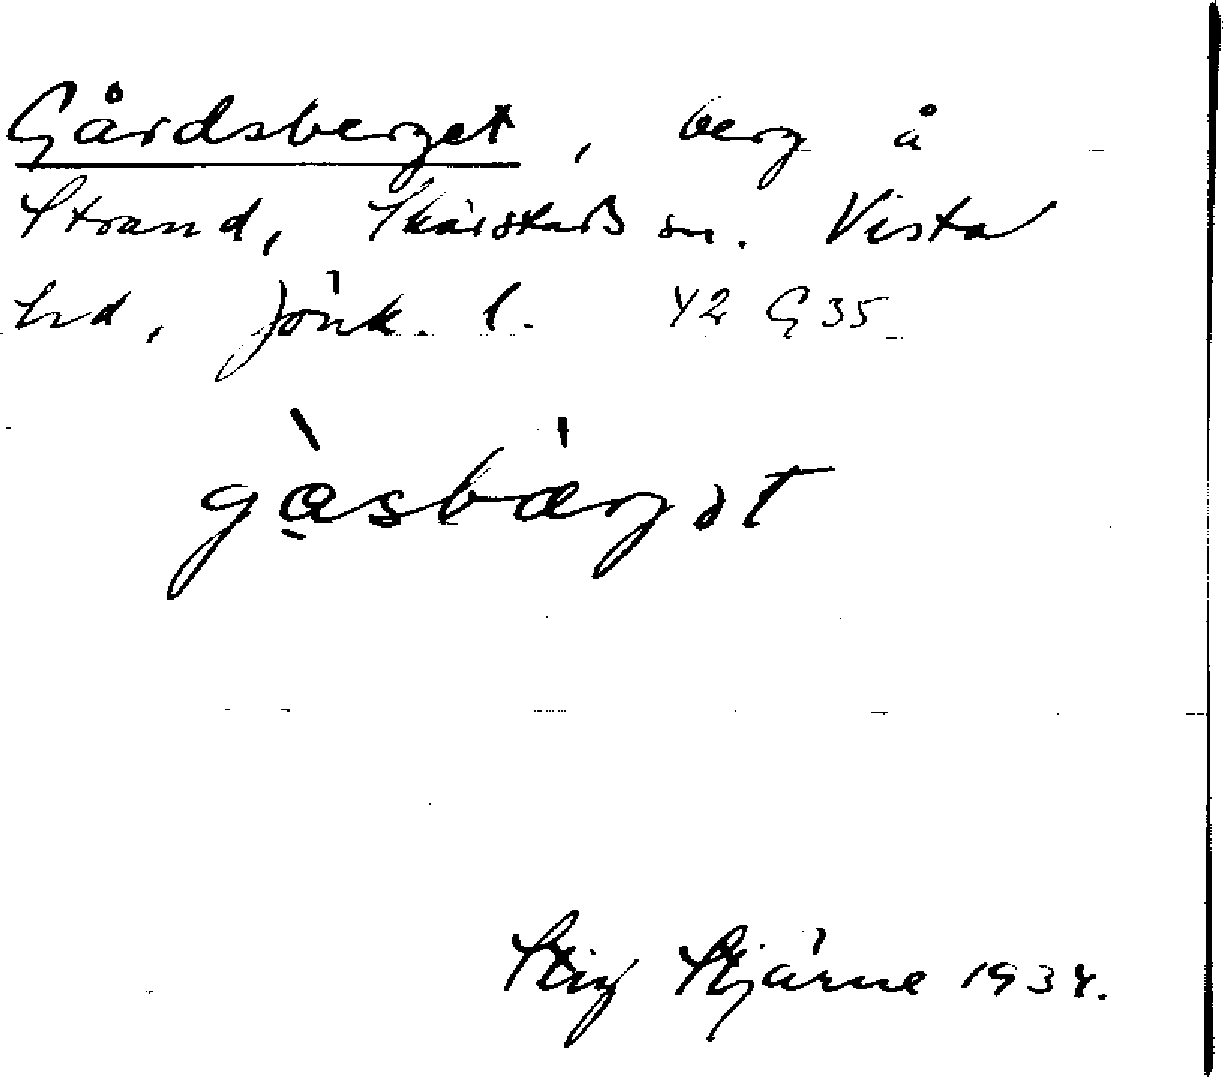 Gårdsberget, berg å
Strand, Skärstads sn. Vista
hd, Jönk. l. 42 G 35
gàsbærgət
Stig Stjärne 1934.